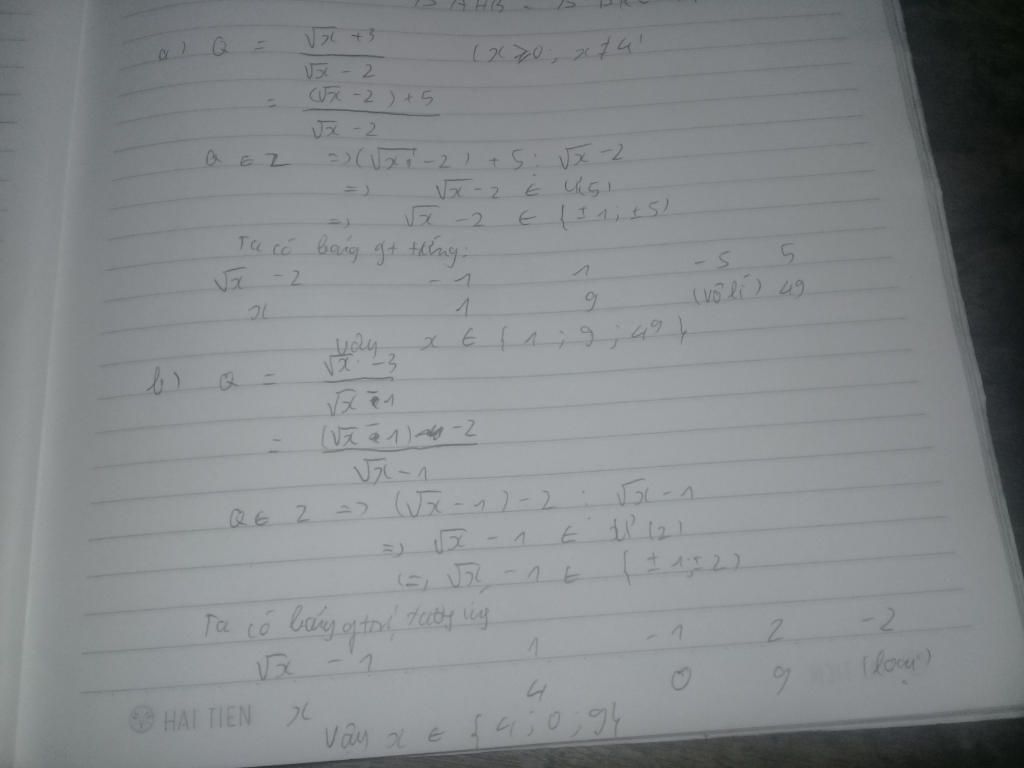 a) Q = (√x + 3)/(√x - 2) (x ≥ 0; x ≠ 4
= ((√x - 2) + 5)/(√x - 2)
Q ∈ Z => (√x - 2) + 5 ⋮ √x - 2
=> √x - 2 ∈ Ư(5)
=> √x - 2 ∈ {±1; ±5}
Ta có bảng gt
√x - 2 -1 1 -5 5
x 1 9 (vô lí) 49
Vậy x ∈ {1; 9; 49}
b) Q = (√x - 3)/(√x - 1)
= ((√x - 1) - 2)/(√x - 1)
Q ∈ Z => (√x - 1) - 2 ⋮ √x - 1
=> √x - 1 ∈ Ư(2)
<=> √x - 1 ∈ {±1; ±2}
Ta có bảng gtrị tương ứng
√x - 1 1 -1 2 -2
x 4 0 9 (loại)
HAI TIEN
Vậy x ∈ {4; 0; 9}